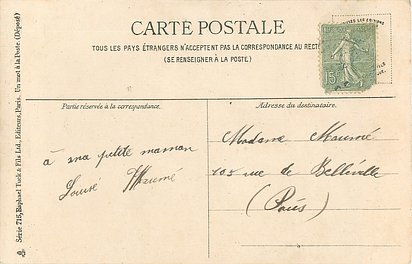 CARTE POSTALE
TOUS LES PAYS ÉTRANGERS N'ACCEPTENT PAS LA CORRESPONDANCE AU RECTO
(SE RENSEIGNER A LA POSTE.)
15
Partie réservée à la correspondance.
Adresse du destinataire.
à ma petite maman
Louise Maumé
Madame Maumé
105 rue de Belleville
(Paris)
Série 715, Raphael Tuck & Fils Ltd, Editeurs, Paris. Un mot à la Poste. (Déposé)